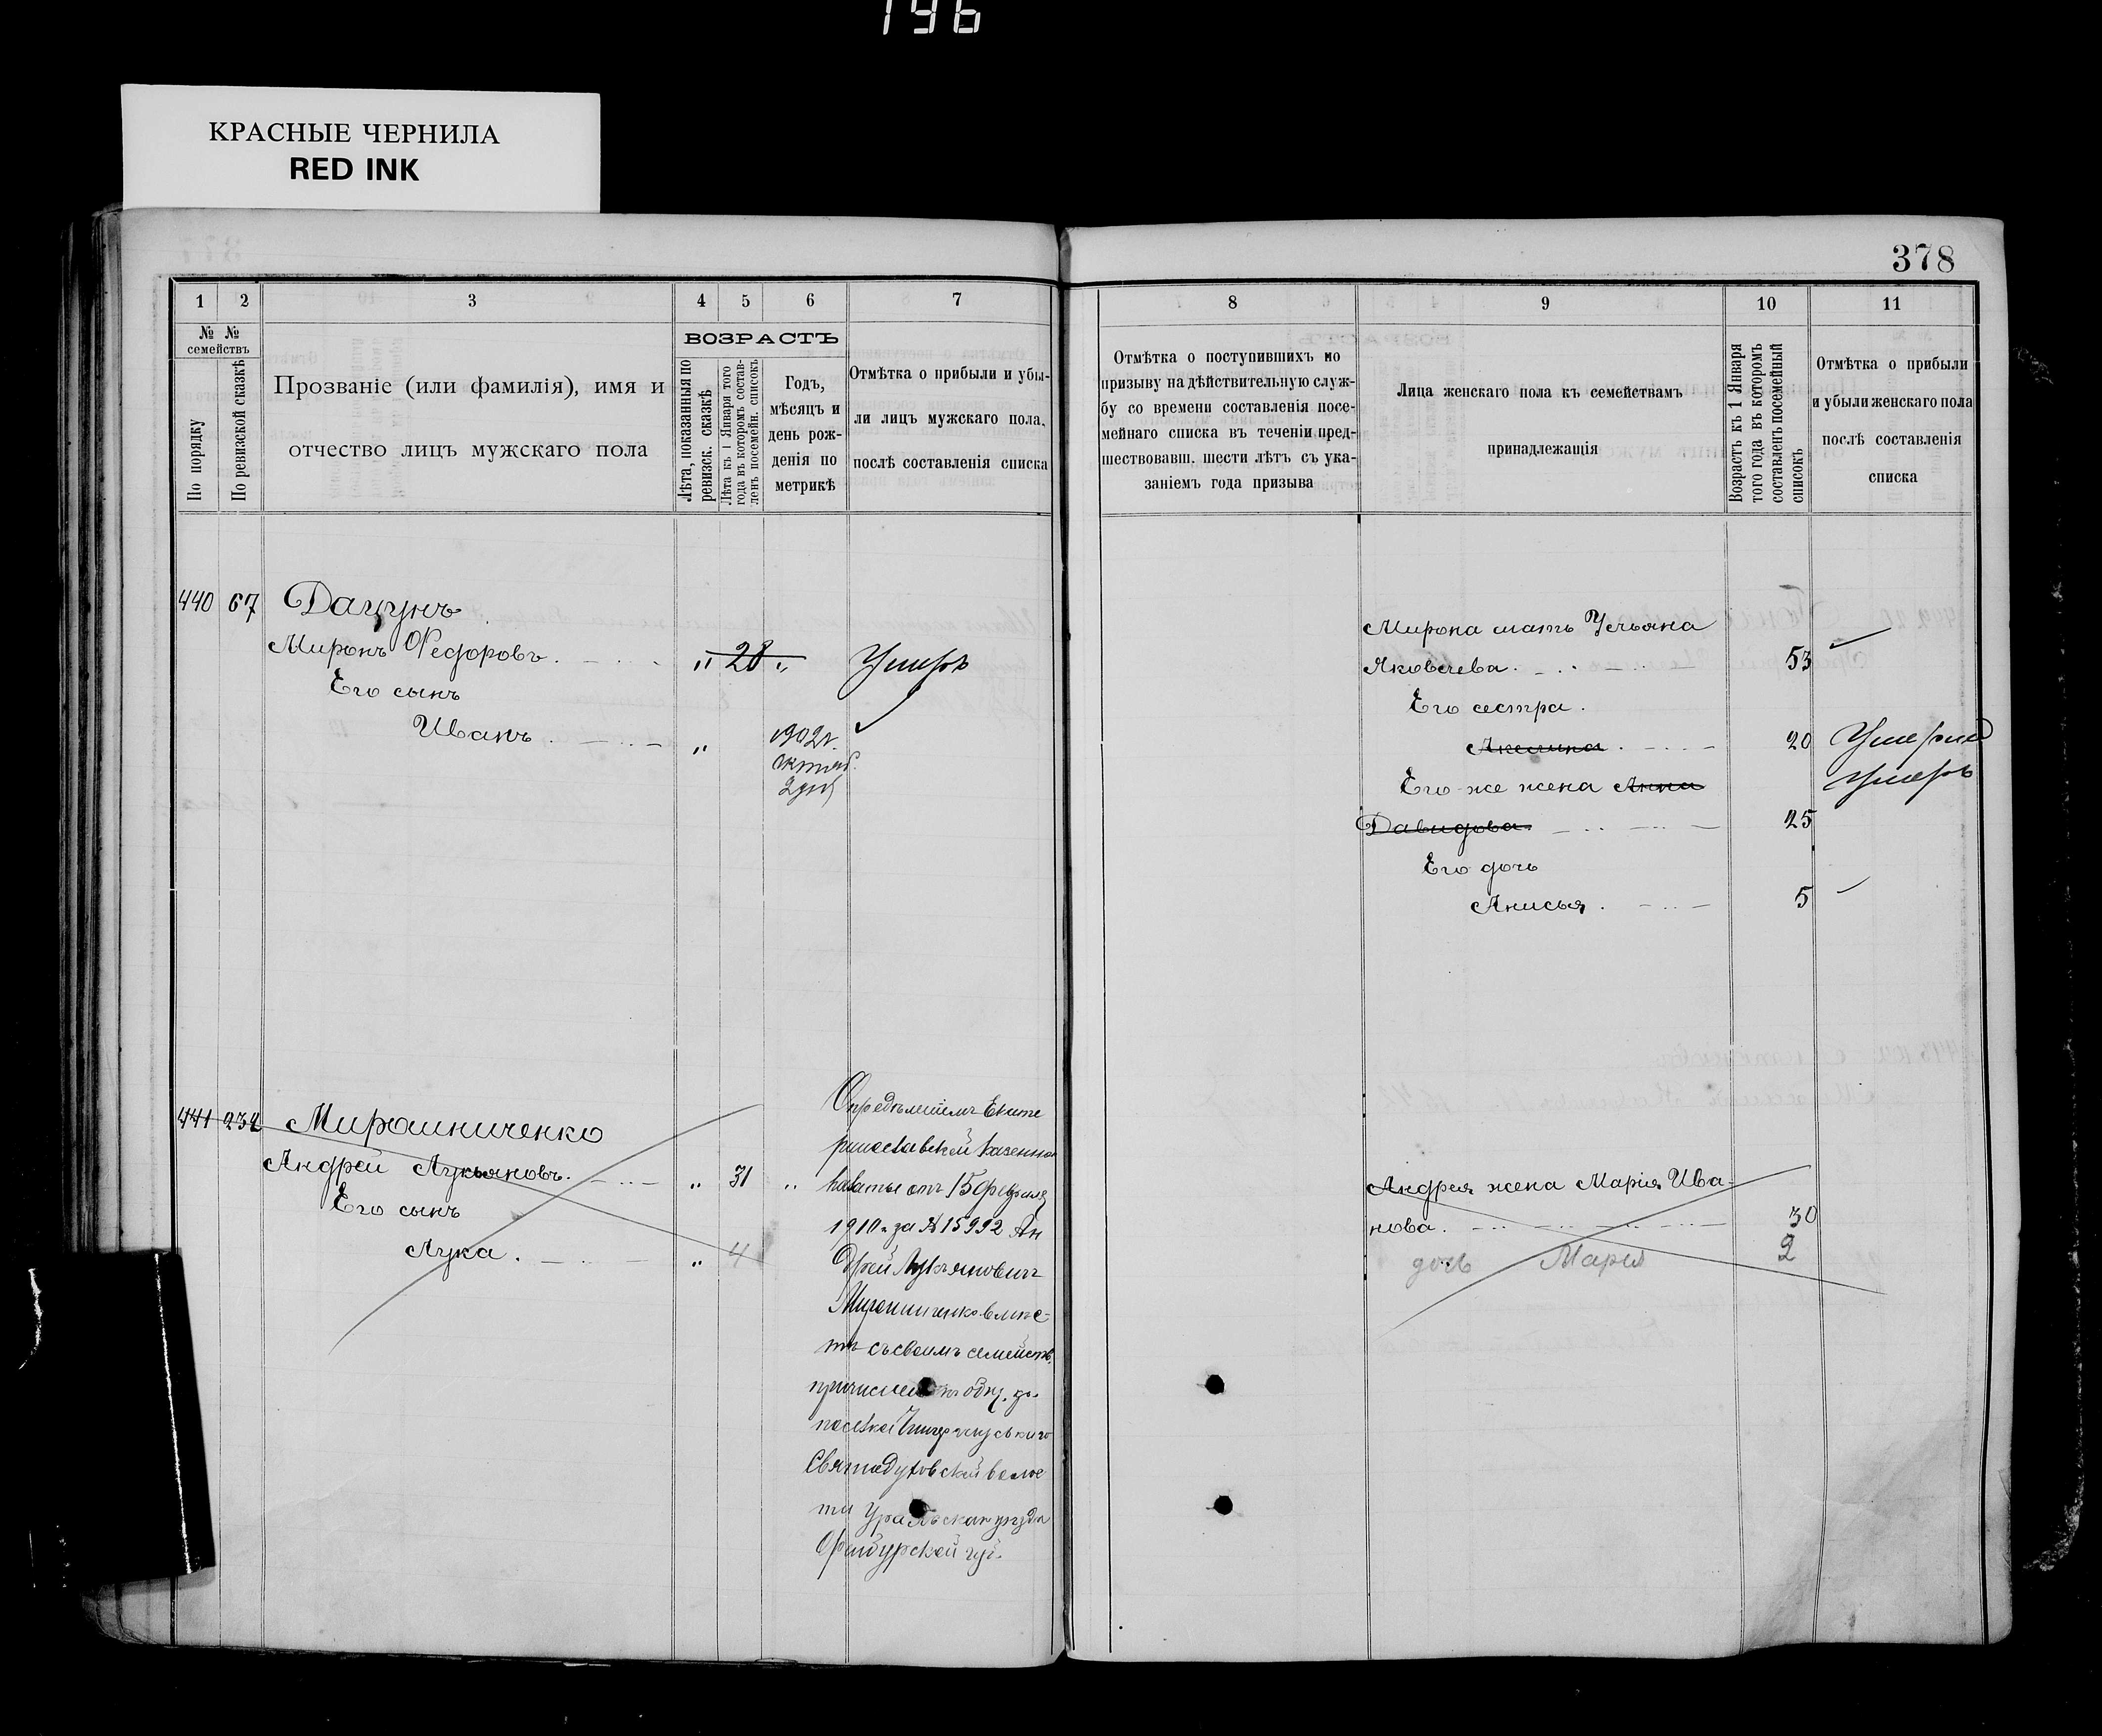 196
КРАСНЫЕ ЧЕРНИЛА
RED INK
378
1 2 3 4 5 6 7
№ № семействъ
По порядку
По ревизской сказкѣ
Прозваніе (или фамилія), имя и
отчество лицъ мужскаго пола
ВОЗРАСТЪ
Лѣта, показанныя по
ревизск. сказкѣ
Лѣта къ 1 Января того
года въ которомъ состав-
ленъ посемейн. списокъ
Годъ,
мѣсяцъ и
день рож-
денія по
метрикѣ
Отмѣтка о прибыли и убы-
ли лицъ мужскаго пола,
послѣ составленія списка
440 67 Дацунъ
Миронъ Ѳедоровъ. „ 28 „ Умеръ
Его сынъ
Иванъ. „ 1902г.
октяб.
2 дня
441 232 Мирошниченко
Андрей Лукьяновъ. „ 31 „
Его сынъ
Лука. „ 4
Опредѣленіемъ Екате
ринославской Казенной
палаты отъ 15 февраля
1910 г за № 15992 Ан
дрей Лукьяновичъ
Мирошниченко вмѣс-
тѣ съ своимъ семейств.
причислен
поселка
волос
ти Уральскаго уѣзда
8 9 10 11
Отмѣтка о поступившихъ по
призыву на дѣйствительную служ-
бу со времени составленія посе-
мейнаго списка въ теченіи пред-
шествовавш. шести лѣтъ съ ука-
заніемъ года призыва
Лица женскаго пола къ семействамъ
принадлежащія
Возрастъ къ 1 Января
того года въ которомъ
составленъ посемейный
списокъ
Отмѣтка о прибыли
и убыли женскаго пола
послѣ составленія
списка
Мирона мать Ульяна
Яковлева. 53
Его сестра.
Акелина. 20 Умерла
Его-же жена Анна Умеръ
Давидова. 25
Его дочь
Анисья. 5
Андрея жена Марія Ива-
нова. 30
дочь Марія 2